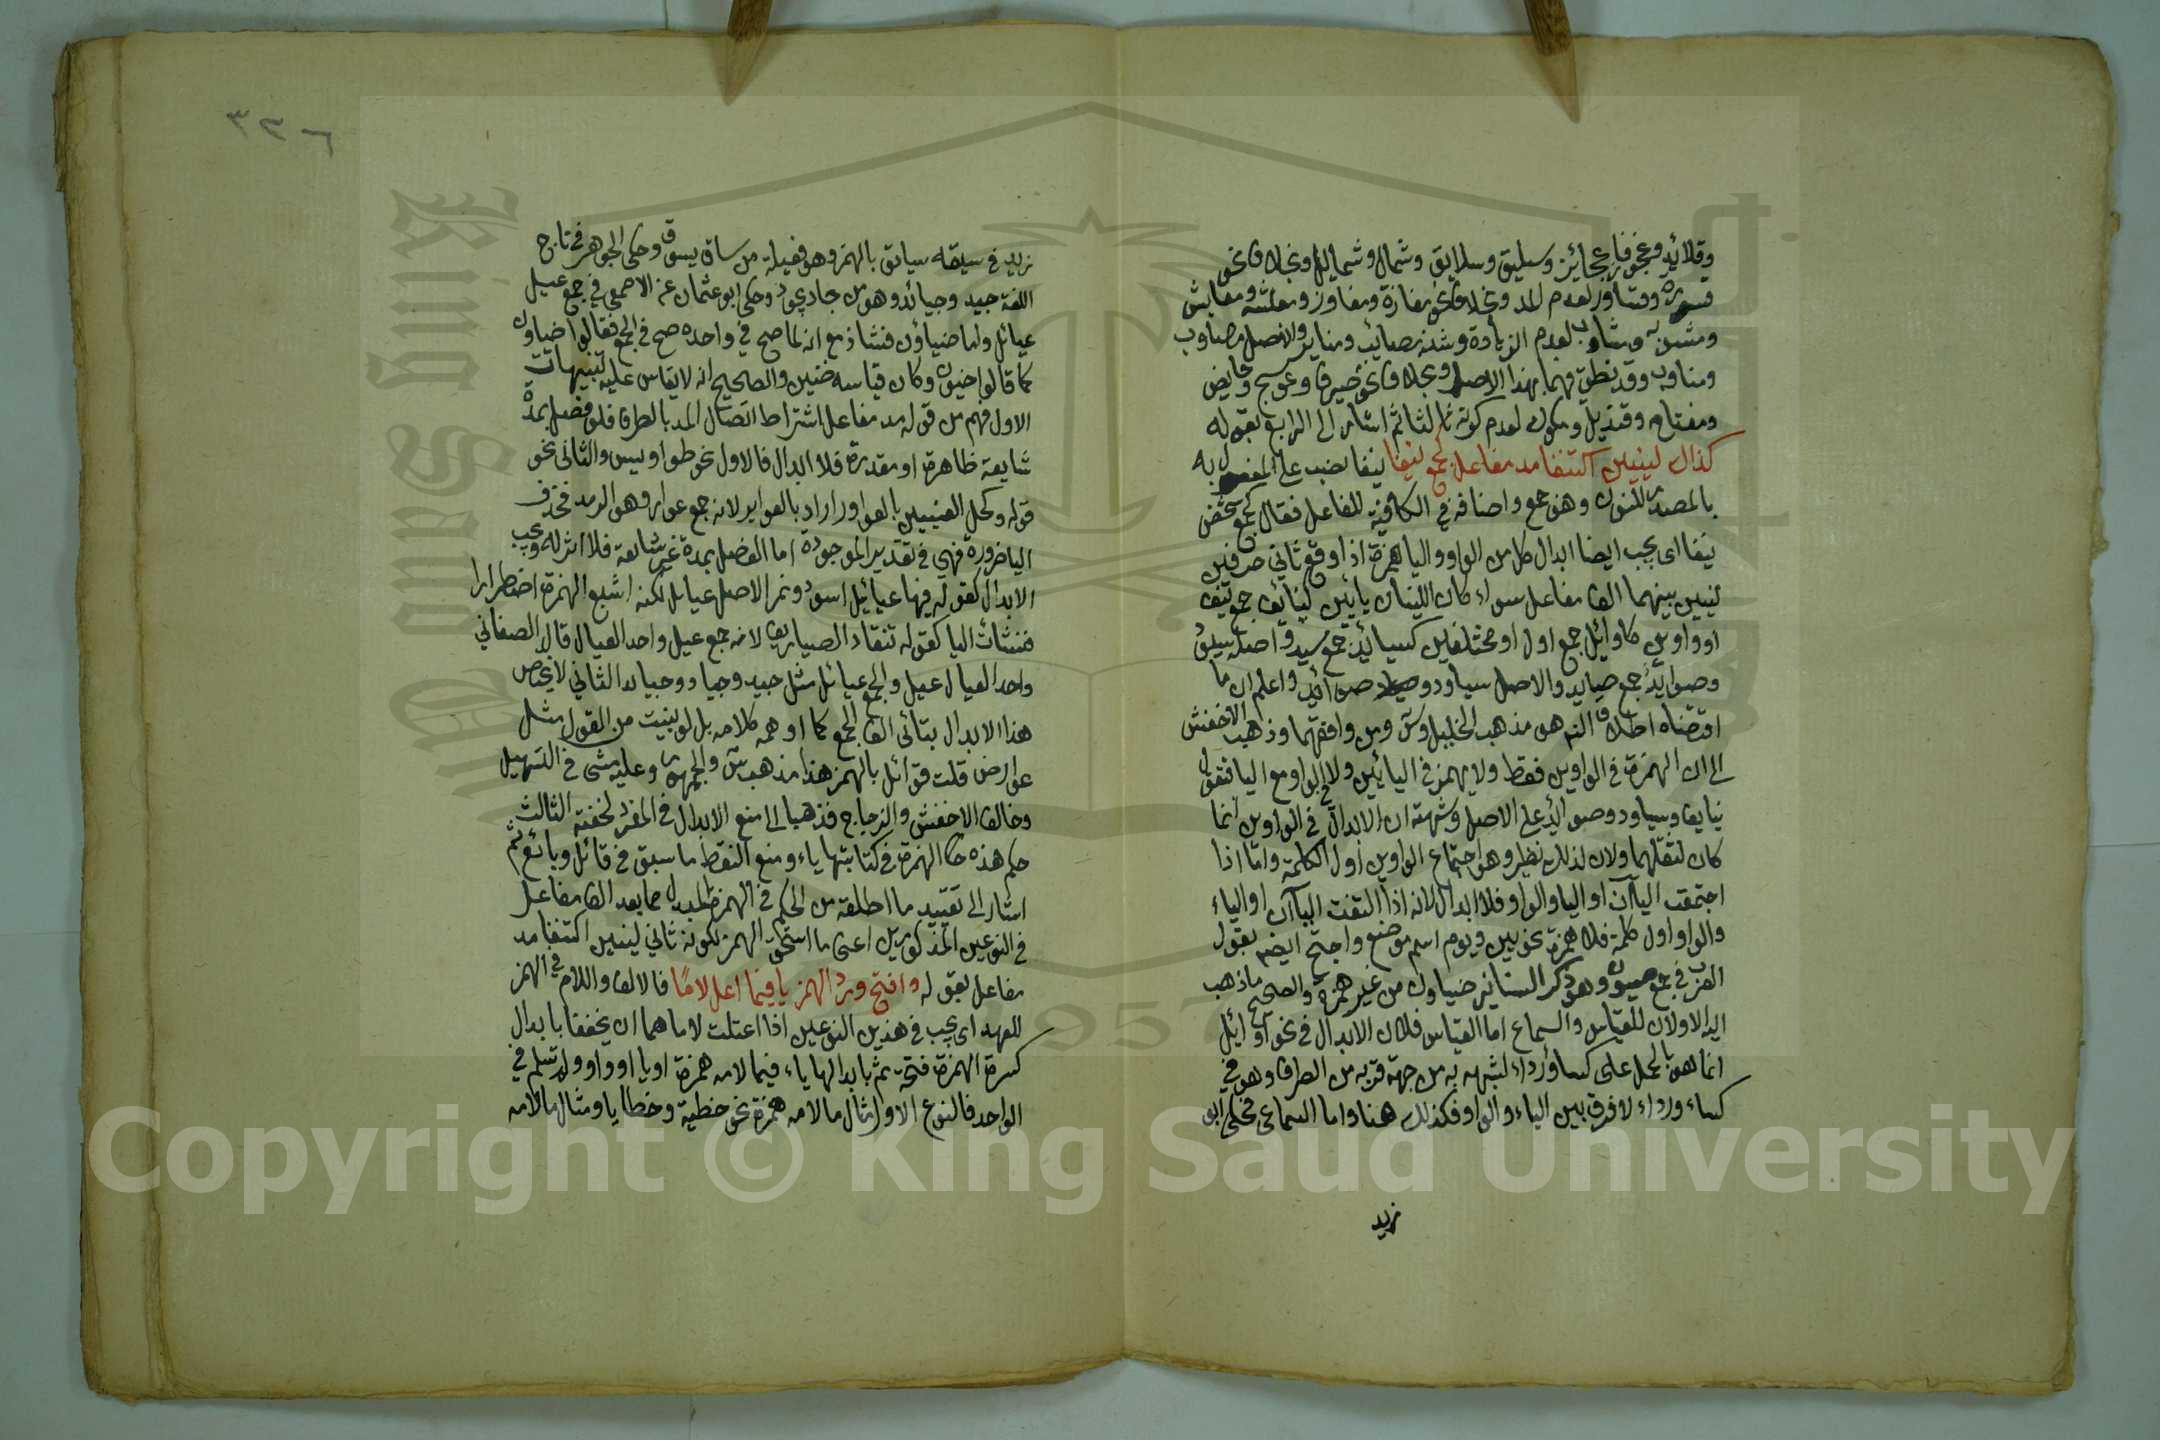 وقلائد وعجوز وعجائز وسليق وسلايق وشمال وشمايل وبخلاف نحو
قسورة وقساور لعدم المد وبخلاف نحو مفازة ومفاوز ومعيشه ومعايش
ومثوبة ومثاوب لعدم الزيادة وشذ مصائب ومناير والاصل مصاوب
ومناوب وقد نطق فيهما بهذا الاصل وبخلاف نحو صيرف وعوسج وحايض
ومفتاح وقنديل ومكوك لعدم كونه ثالثا ثم اشار الى الرابع بقوله
كذاك ثاني لينين اكتنفا مد مفاعل كجمع نيفا نيفا نصب على المفعول به
بالمصدر المنون وهو جمع واضافه في الكافية للفاعل فقال كجمع شخص
نيفا اى يجب ايضا ابدال كل من الواو واليا همزة اذا وقع ثاني حرفين
لينين بينهما الف مفاعل سواء كان اللينان يايين كنيائف جمع نيف
او واوين كاوائل جمع اول او مختلفين كسيائد جمع سيد واصله سيود
وصوايد جمع صايد والاصل سياود وصوايد واعلم ان ما
اقتضاه اطلاق النم هو مذهب الخليل وس ومن وافقهما وذهب الاخفش
الى ان الهمزة في الواوين فقط ولا يهمز في اليائين ولا في الواو مع اليا فتقول
نيايف وسياود وصوايد على الاصل وشبهته ان الابدال في الواوين انما
كان لثقلهما ولان لذلك نظير وهو اجتماع الواوين اول الكلمة واما اذا
اجتمعت الياآن او اليا والواو فلا ابدال لانه اذا التقت الياآن او الياء
والواو اول كلمة فلا همزة نحو يين ويوم اسم موضع واحتج ايضا بقول
العرب في جمع ضيون وهو ذكر السنانير ضياون من غير همزة والصحيح ما ذهب
اليه الاولان للقياس والسماع اما القياس فلان الابدال في نحو اوائل
انما هو بالحمل على كساء ورداء لشبهه به من جهة قربه من الطرف وهو في
كساء ورداء لا فرق بين الياء والواو فكذلك هنا واما السماع فحكى ابو
زيد
٣٣٦
زيد في سيقه سيائق بالهمز وهو فعيلة من ساق يسوق وحكى الجوهر في تاج
اللغة جيد وجيائد وهو من جاد يجود وحكى ابو عثمان عن الاصمعي في جمع عيل
عيائل واما ضياون فشاذ مع انه لما صح في واحده صح في الجمع فقالوا ضياون
كما قالوا ضيون وكان قياسه ضين والصحيح انه لا يقاس عليه تنبيهات
الاول فهم من قوله مد مفاعل اشتراط اتصال المد بالطرف فلو فصل بمدة
شايعة ظاهرة او مقدرة فلا ابدال فالاول نحو طواويس والثاني نحو
قوله وكحل العينين بالعواور اراد بالعواير لانه جمع عوار وهو الرمد فحذف
اليا ضرورة فهي في تقدير الموجودة اما الفصل بمدة غير شايعة فلا اثر له ويجب
الابدال كقوله فيها عيائيل اسود ونمر الاصل عيايل لكنه اشبع الهمزة اضطرارا
فنشات اليا كقوله تنقاد الصياريف لانه جمع عيل واحد العيال قال الصغاني
واحد العيال عيل والجمع عيائل مثل جيد وجياد وجيايد الثاني لا يختص
هذا الابدال بتالي الف الجمع كما اوهمه كلامه بل لو بنيت من القول مثل
عوارض قلت قوائل بالهمز هذا مذهب س والجمهور وعليه مشى في التسهيل
وخالف الاخفش والزجاج فذهبا الى منع الابدال في المفرد لخفته الثالث
حكم هذه الهمزة في كتابتها ياء ومنع النقط ما سبق في قائل وبائع ثم
اشار الى تقييد ما اطلقه من الحكم في الهمزة المبدل مما بعد الف مفاعل
في النوعين المذكورين اعنى ما استحق الهمز لكونه ثاني لينين اكتنفا مد
مفاعل بقوله وافتح ورد الهمز يا فيما اعل لاما فالالف واللام في الهمز
للعهد اى يجب في هذين النوعين اذا اعتلت لامهما ان يخففا بابدال
كسرة الهمزة فتحة ثم بابدالها ياء فيما لامه همزة او يا او واو ولم تسلم في
الواحد فالنوع الاول مثال ما لامه همزة نحو خطية وخطايا ومثال ما لامه